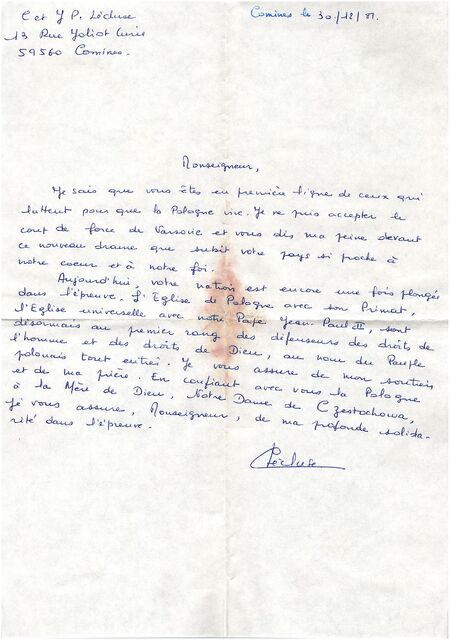 C et J P. Lécluse
13 Rue Joliot Curie
59560 Comines.
Comines le 30/12/81.
Monseigneur,
Je sais que vous êtes en première ligne de ceux qui
luttent pour que la Pologne vive. Je ne puis accepter le
coup de force de Varsovie et vous dis ma peine devant
ce nouveau drame que subit votre pays si proche à
notre coeur et à notre foi.
Aujourd'hui, votre nation est encore une fois plongée
dans l'épreuve. L'Eglise de Pologne avec son Primat,
l'Eglise universelle avec notre Pape Jean-Paul II, sont
désormais au premier rang des défenseurs des droits de
l'homme et des droits de Dieu, au nom du Peuple
polonais tout entier. Je vous assure de mon soutien
et de ma prière. En confiant avec vous la Pologne
à la Mère de Dieu, Notre Dame de Czestochowa,
je vous assure, Monseigneur, de ma profonde solida-
rité dans l'épreuve.
Lécluse